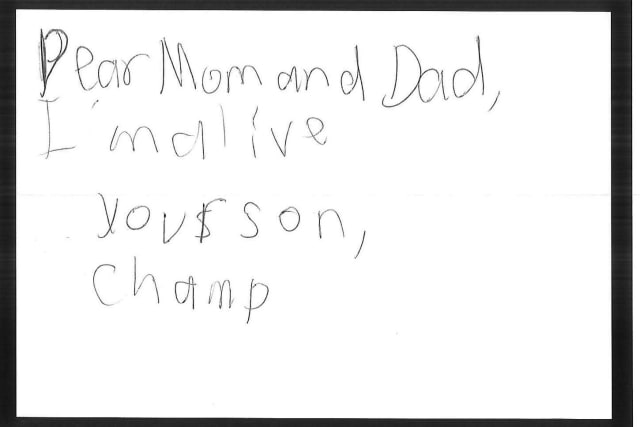 Dear Mom and Dad,
I'm alive
your son,
Champ